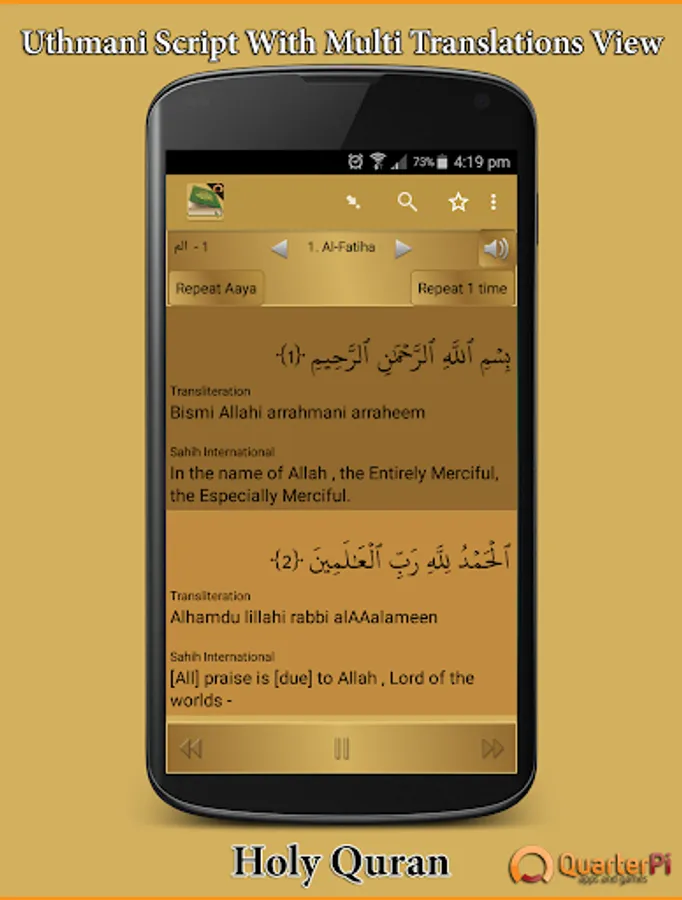 Uthmani Script With Multi Translations View
73% 4:19 pm
الم - 1 1. Al-Fatiha
Repeat Aaya Repeat 1 time
بِسْمِ ٱللَّهِ ٱلرَّحْمَٰنِ ٱلرَّحِيمِ ﴿1﴾
Transliteration
Bismi Allahi arrahmani arraheem
Sahih International
In the name of Allah , the Entirely Merciful,
the Especially Merciful.
ٱلْحَمْدُ لِلَّهِ رَبِّ ٱلْعَٰلَمِينَ ﴿2﴾
Transliteration
Alhamdu lillahi rabbi alAAalameen
Sahih International
[All] praise is [due] to Allah , Lord of the
worlds -
Holy Quran
QuarterPi
apps and games